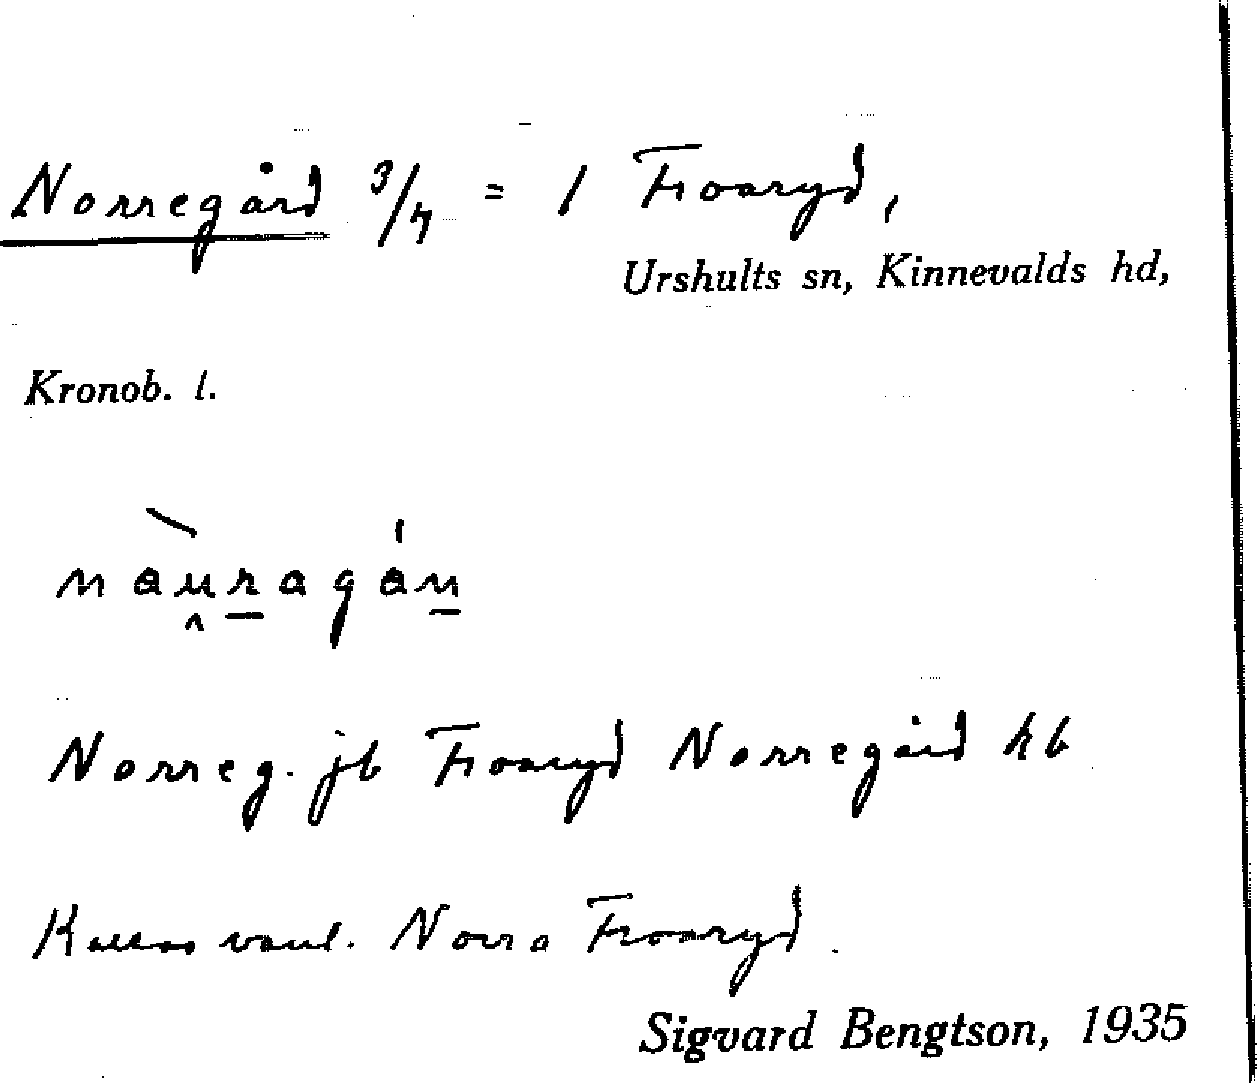 Norregård 3/4 = 1 Froaryd,
Urshults sn, Kinnevalds hd,
Kronob. l.
Norreg. jb Froaryd Norregård kb
Kallas vanl. Norra Froaryd.
Sigvard Bengtson, 1935